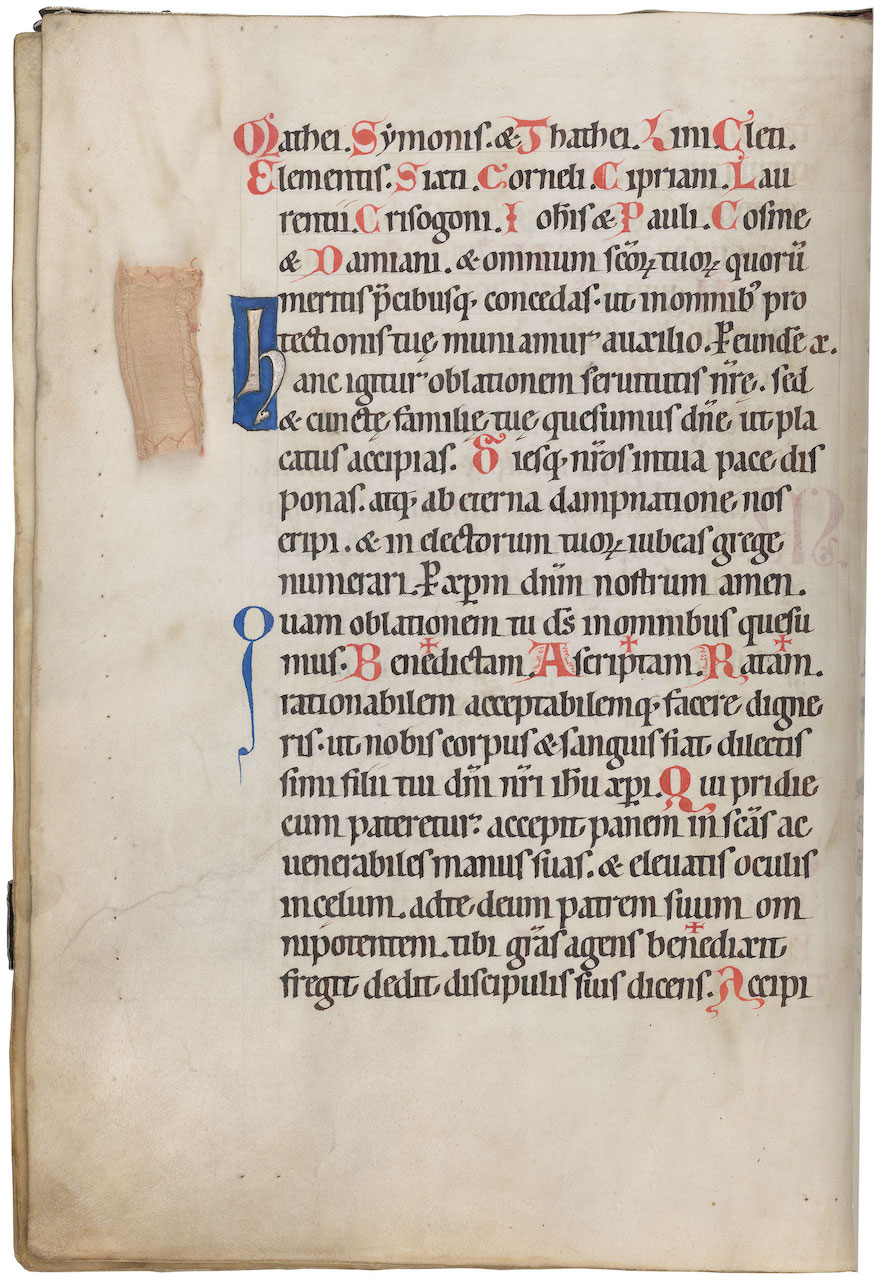 Mathei. Symonis. & Thathei. Lini Cleti.
Clementis. Sixti. Corneli. Cipriani. Lau
rentii. Crisogoni. Ioh̅is & Pauli. Cosme
& Damiani. & omnium sc̅oꝝ tuoꝝ quorū
meritis p̅cibusq; concedas. ut in omnibꝰ pro
tectionis tuę muniamur auxilio. P eunde x.
Hanc igitur oblationem seruitutis n̅re. sed
& cunctę familię tuę quesumus dn̅e ut pla
catus accipias. Diesq; nr̅os in tua pace dis
ponas. atq; ab eterna dampnatione nos
eripi. & in electorum tuoꝝ iubeas grege
numerari. P xp̅m dn̅m nostrum amen.
Quam oblationem tu ds̅ in omnibus quesu
mus. Bene✝dictam. Ascrip✝tam. Ra✝tam.
rationabilem acceptabilemq; facere digne
ris. ut nobis corpus & sanguis fiat dilectis
simi filii tui dn̅i nr̅i ih̅u xp̅i. Qui pridie
cum pateretur. accepit panem in sc̅as ac
uenerabiles manus suas. & eleuatis oculis
in celum. ad te deum patrem suum om
nipotentem. tibi gr̅as agens bene✝dixit
fregit dedit discipulis suis dicens. Accipi